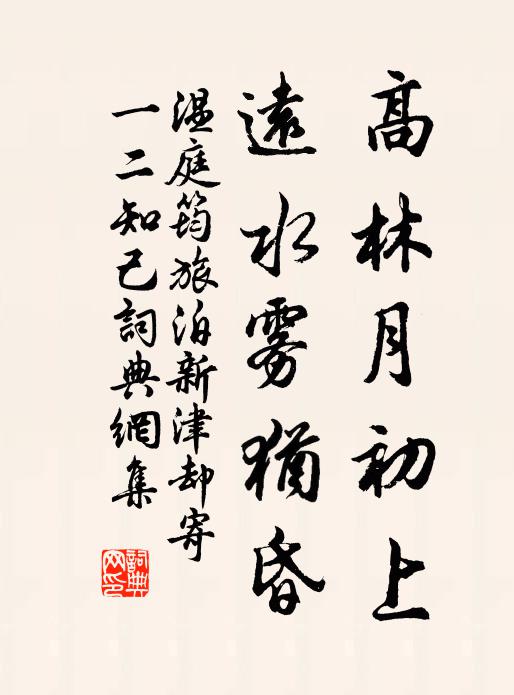 高林月初上
遠水雾猶昏
温庭筠旅泊新津却寄
一二知己詞典網集
詞典网印